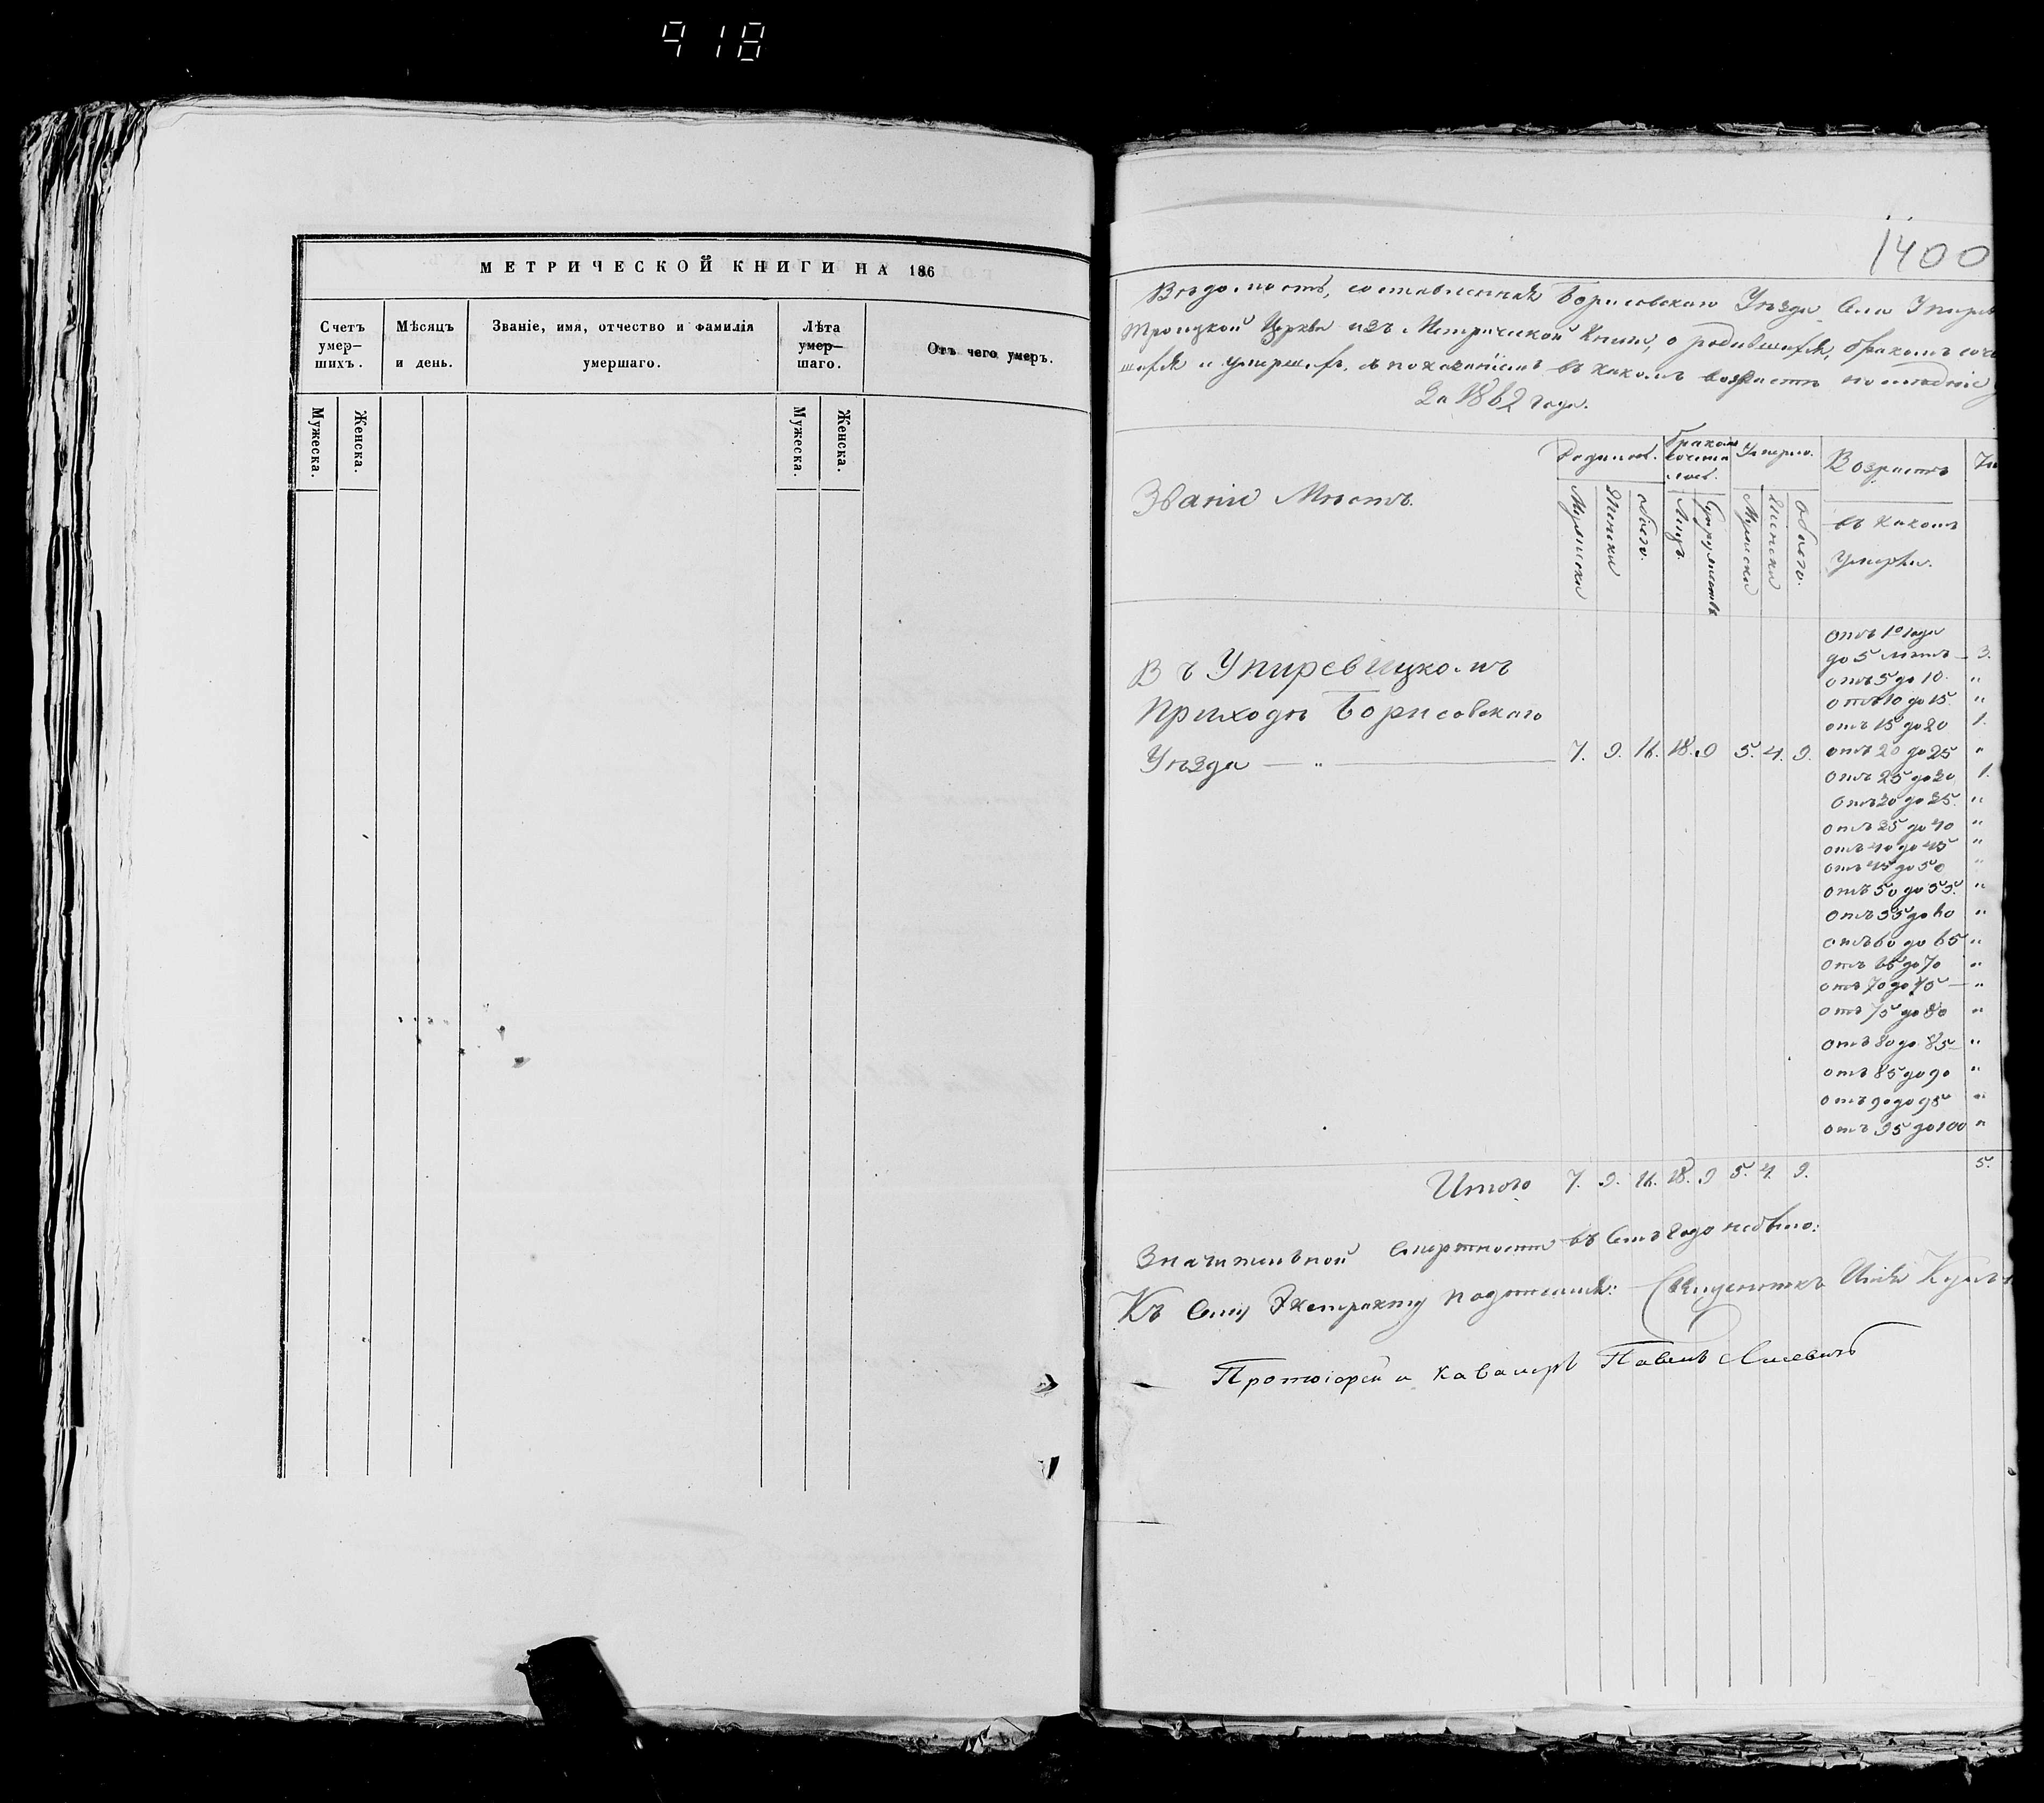 918
МЕТРИЧЕСКОЙ КНИГИ НА 186
Счетъ умер- шихъ.
Мѣсяцъ и день.
Званіе, имя, отчество и фамилія умершаго.
Лѣта умер- шаго.
Отъ чего умеръ.
Мужеска.
Женска.
Мужеска.
Женска.
1400
Вѣдомость, составленная Борисовскаго Уѣзда Села
Троицкой Церкви изъ Метрической Книги, о родившихся, бракомъ
шихся и умершихъ, съ показаніемъ въ какомъ возрастѣ послѣдніе
За 1862 годъ.
Званіе Мѣстъ.
Родилось.
Бракомъ сочета лось.
Умерло.
Возрастъ
въ какомъ
Умерли.
Мужеска
Женска
обоего.
Лицъ.
Супружествъ
Мужеска
Женска
Обоего.
Въ Упиревицкомъ
Приходѣ Борисовскаго
Уѣзда — " — 7. 9. 16. 18. 9 5. 4. 9.
отъ 1го года
до 5 лѣтъ — 3.
отъ 5 до 10. "
отъ 10 до 15. "
отъ 15 до 20 1.
отъ 20 до 25 "
отъ 25 до 30 1.
отъ 30 до 35. "
отъ 35 до 40 "
отъ 40 до 45 "
отъ 45 до 50 "
отъ 50 до 55. "
отъ 55 до 60 "
отъ 60 до 65 "
отъ 65 до 70 "
отъ 70 до 75 — "
отъ 75 до 80 "
отъ 80 до 85 — "
отъ 85 до 90 "
отъ 90 до 95 "
отъ 95 до 100 "
Итого 7. 9. 16. 18. 9 5. 4. 9. 5.
Значительной Смертности въ Семъ Году небыло:
Къ Сему Экстракту подписался: Священникъ
Протоіерей и кавалеръ Павелъ